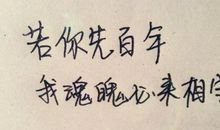 若你先百年
我魂魄必来相